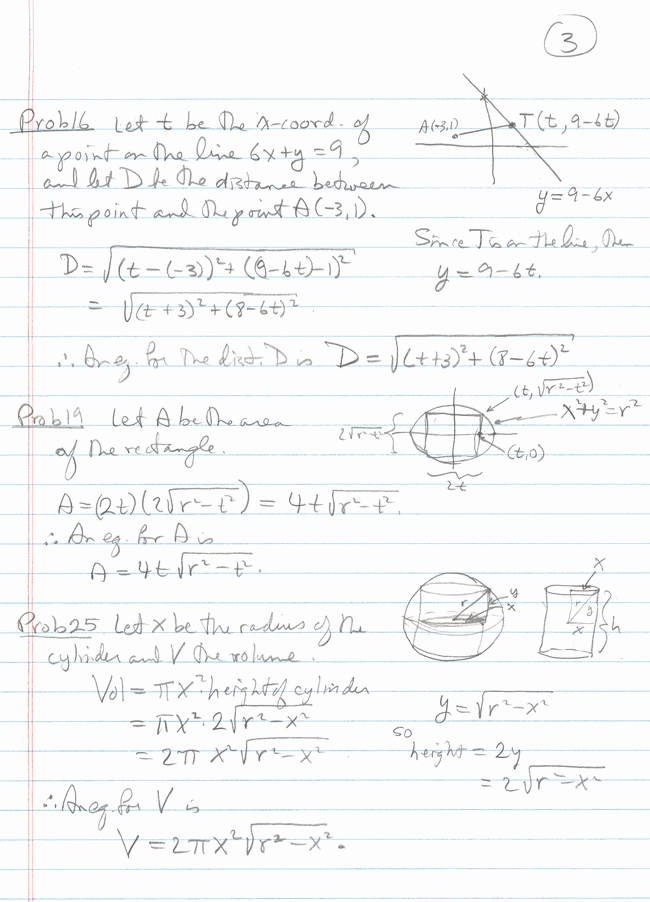 3
Prob16 Let t be the x-coord. of
a point on the line 6x+y=9,
and let D be the distance between
this point and the point A(-3,1).
A(-3,1)
T(t, 9-6t)
y=9-6x
Since T is on the line, then
y = 9-6t.
D = √((t-(-3))²+((9-6t)-1)²
= √(t+3)²+(8-6t)²
∴ An eq. for the dist. D is D = √(t+3)²+(8-6t)²
Prob19 Let A be the area
of the rectangle.
(t, √r²-t²)
x²+y²=r²
2√r²-t²
(t,0)
2t
A=(2t)(2√r²-t²) = 4t√r²-t².
∴ An eq. for A is
A = 4t√r²-t².
Prob25 Let x be the radius of the
cylinder and V the volume.
r
y
x
x
r
y
x
h
Vol = πx²·height of cylinder
= πx²·2√r²-x²
= 2π x²√r²-x²
y = √r²-x²
so
height = 2y
= 2√r²-x²
∴ An eq. for V is
V = 2πx²√r²-x².